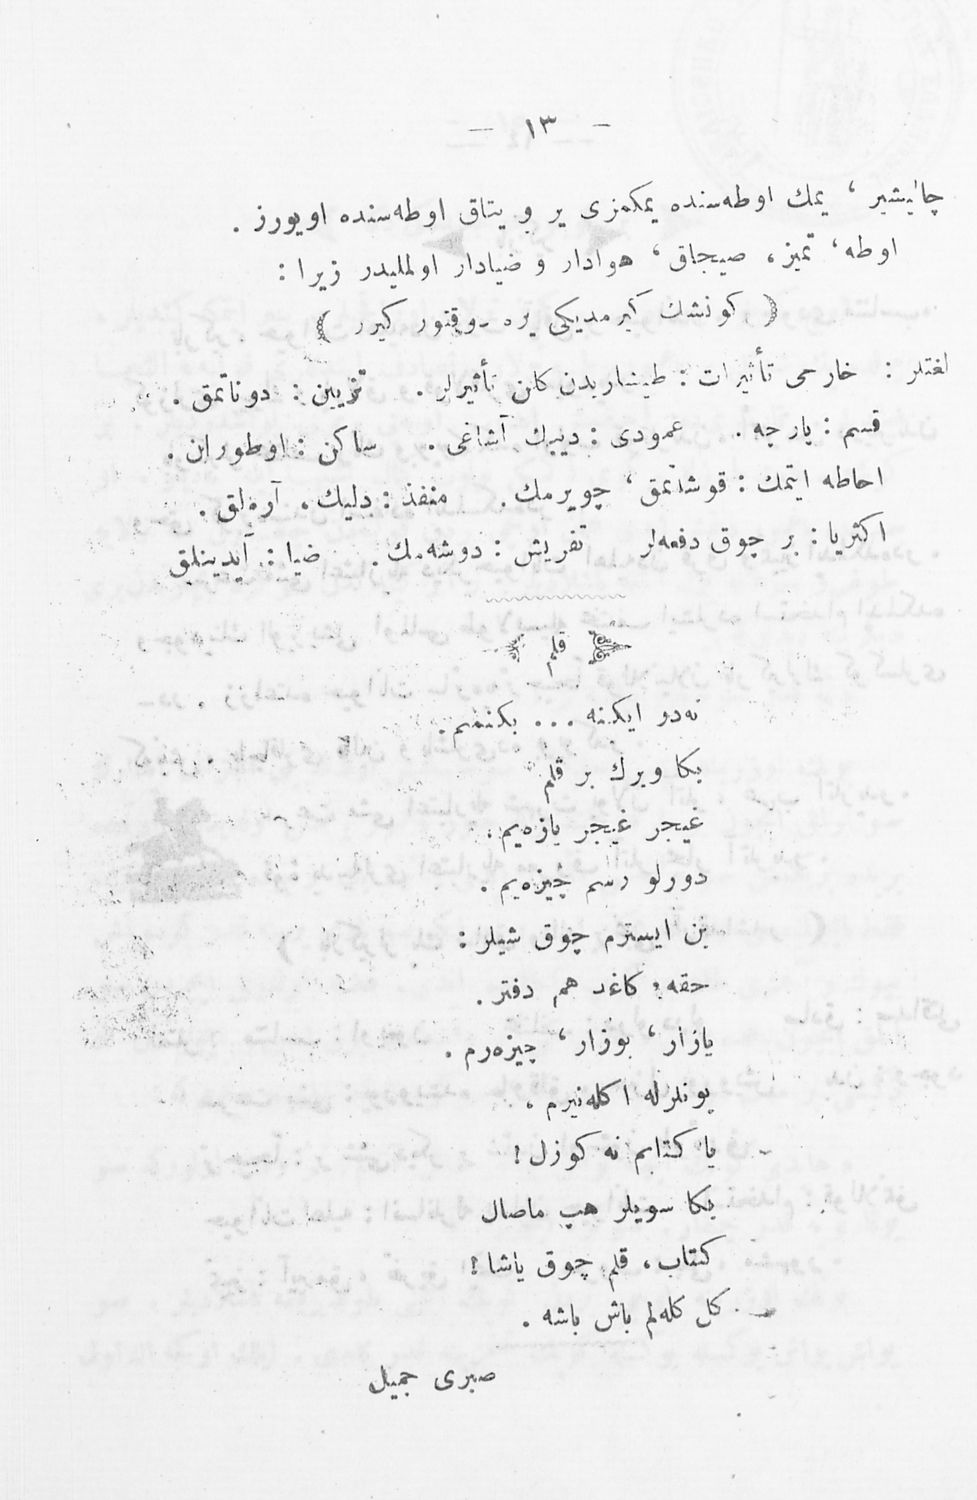 — ١٣ —
چاليشير ، يمك اوطه‌سنده يمكمزى ير و يتاق اوطه‌سنده اويورز .
اوطه ، تميز ، صيجاق ، هوادار و ضيادار اولمليدر زيرا :
﴿ كونشك كيرمديكى يره دوقتور كيرر ﴾
لغتلر : خارجى تأثيرات : طيشاريدن كلن تأثيرلر . تزيين : دوناتمق .
قسم : پارچه . عمودى : ديبك آشاغى . ساكن : اوطوران .
احاطه ايتمك : قوشاتمق ، چويرمك . منفذ : دليك ، آره‌لق .
اكثريا : بر چوق دفعه‌لر تفريش : دوشه‌مك . ضيا : آيدينلق
قلم
نه‌دو ايكنه ... بكنمم .
بكا ويرك بر قلم
غيجر غيجر يازه‌يم .
دورلو رسم چيزه‌يم .
بن ايسترم چوق شيلر :
حقه ، كاغد هم دفتر .
يازار ، بوزار ، چيزه‌رم .
بونلرله اكله‌نيرم .
يا كتابم نه كوزل !
بكا سويلر هپ ماصال
كتاب ، قلم چوق ياشا !
كل كله‌لم باش باشه .
صبرى جميل